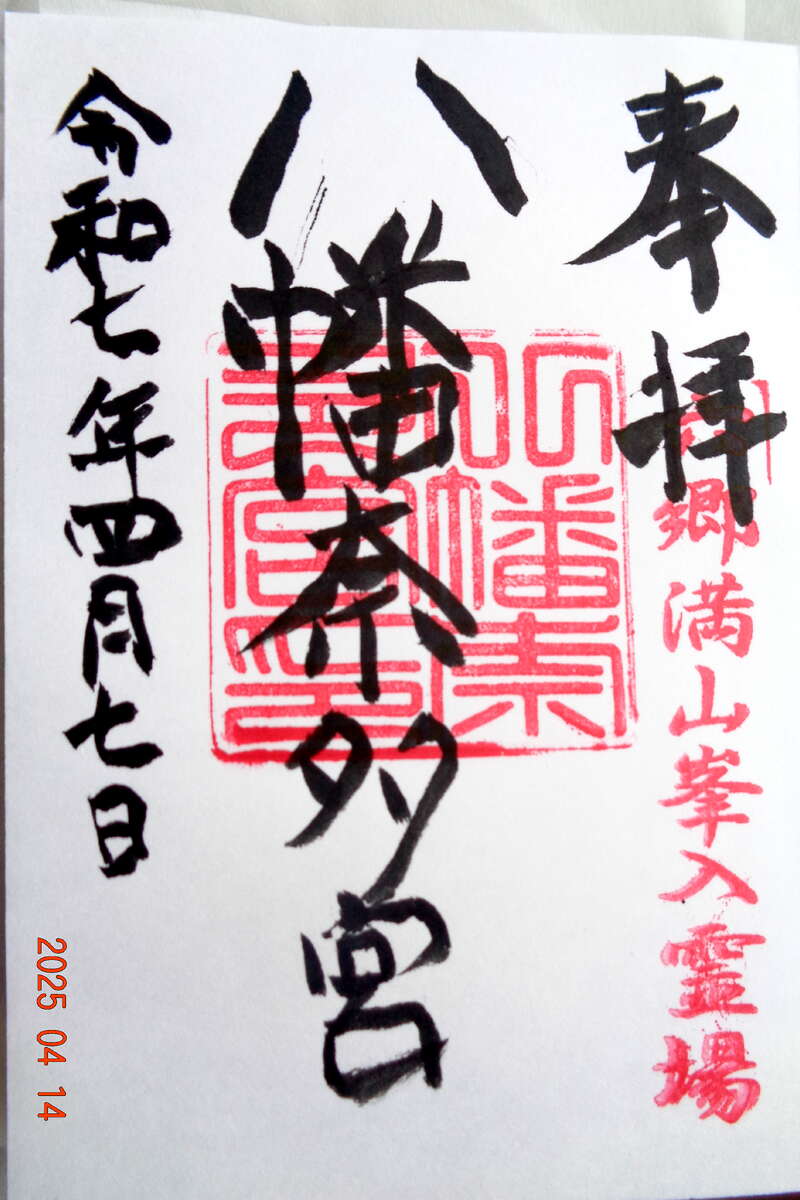 奉拝
郷満山峯入霊場
八幡奈多宮
八幡奈
多宮印
令和七年四月七日
2025 04 14